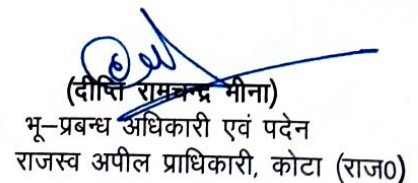 (दीप्ति रामचन्द्र मीना)
भू-प्रबन्ध अधिकारी एवं पदेन
राजस्व अपील प्राधिकारी, कोटा (राज0)